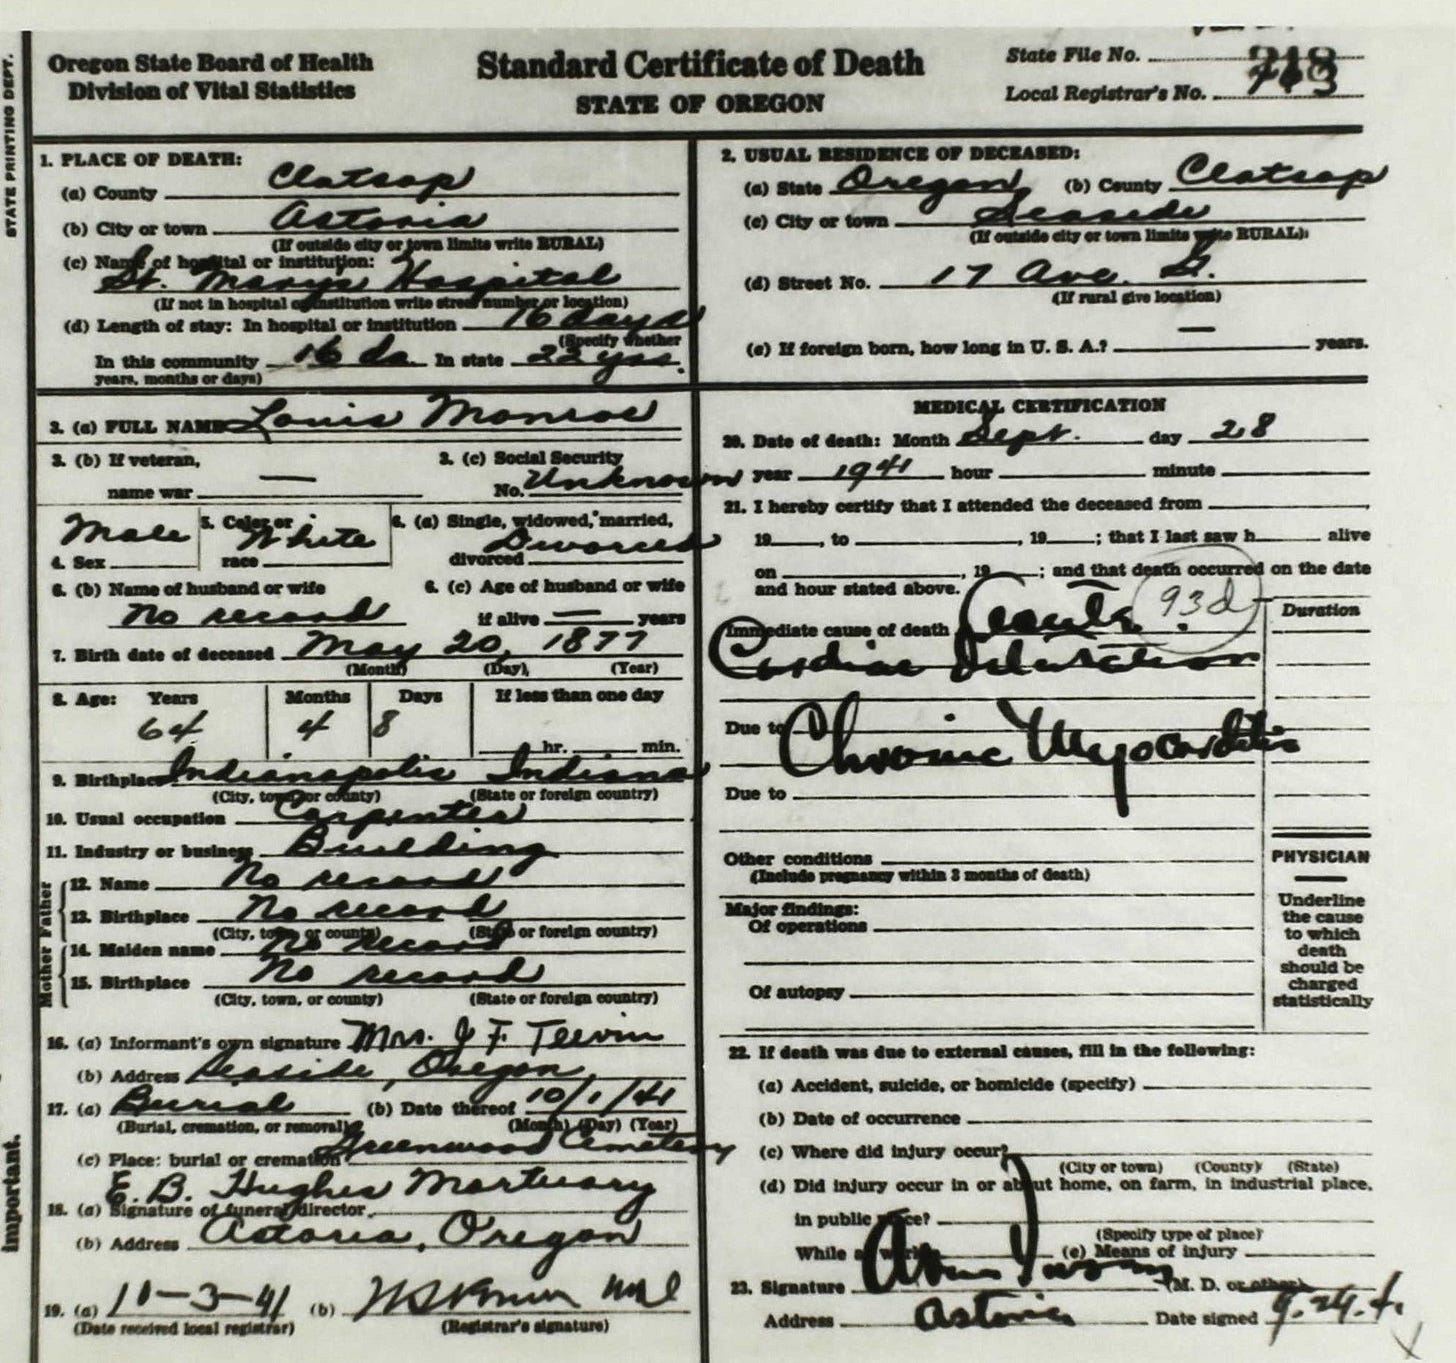 STATE PRINTING DEPT.
Important.
Oregon State Board of Health
Division of Vital Statistics
Standard Certificate of Death
STATE OF OREGON
State File No.
Local Registrar's No.
1. PLACE OF DEATH:
(a) County Clatsop
(b) City or town Astoria
(If outside city or town limits write RURAL)
(c) Name of hospital or institution:
St. Mary's Hospital
(If not in hospital or institution write street number or location)
(d) Length of stay: In hospital or institution 16 days
(Specify whether
In this community 16 da. In state 22 yrs.
years, months or days)
2. USUAL RESIDENCE OF DECEASED:
(a) State Oregon (b) County Clatsop
(c) City or town Seaside
(If outside city or town limits write RURAL)
(d) Street No. 17 Ave.
(If rural give location)
(e) If foreign born, how long in U. S. A.? — years.
3. (a) FULL NAME Louis Monroe
3. (b) If veteran, 3. (c) Social Security
name war — No. Unknown
4. Sex Male 5. Color or race White 6. (a) Single, widowed, married, divorced Divorced
6. (b) Name of husband or wife 6. (c) Age of husband or wife
No record if alive — years
7. Birth date of deceased May 20, 1877
(Month) (Day) (Year)
8. Age: Years Months Days If less than one day
64 4 8 hr. min.
9. Birthplace Indianapolis Indiana
(City, town or county) (State or foreign country)
10. Usual occupation Carpenter
11. Industry or business Building
Father
12. Name No record
13. Birthplace No record
(City, town or county) (State or foreign country)
Mother
14. Maiden name No record
15. Birthplace No record
(City, town, or county) (State or foreign country)
16. (a) Informant's own signature Mrs. J F. Teevin
(b) Address Seaside, Oregon
17. (a) Burial (b) Date thereof 10/1/41
(Burial, cremation, or removal) (Month) (Day) (Year)
(c) Place: burial or cremation Greenwood Cemetery
E. B. Hughes Mortuary
18. (a) Signature of funeral director
(b) Address Astoria, Oregon
19. (a) 10-3-41 (b)
(Date received local registrar) (Registrar's signature)
MEDICAL CERTIFICATION
20. Date of death: Month Sept. day 28
year 1941 hour minute
21. I hereby certify that I attended the deceased from ,
19 , to , 19 ; that I last saw h alive
on , 19 ; and that death occurred on the date
and hour stated above. 93d
Immediate cause of death Acute Duration
Cardiac Dilatation
Due to Chronic Myocarditis
Due to
Other conditions
(Include pregnancy within 3 months of death)
Major findings:
Of operations
Of autopsy
PHYSICIAN
Underline
the cause
to which
death
should be
charged
statistically
22. If death was due to external causes, fill in the following:
(a) Accident, suicide, or homicide (specify)
(b) Date of occurrence
(c) Where did injury occur?
(City or town) (County) (State)
(d) Did injury occur in or about home, on farm, in industrial place,
in public place?
(Specify type of place)
While at work (e) Means of injury
23. Signature (M. D. or other)
Address Astoria Date signed